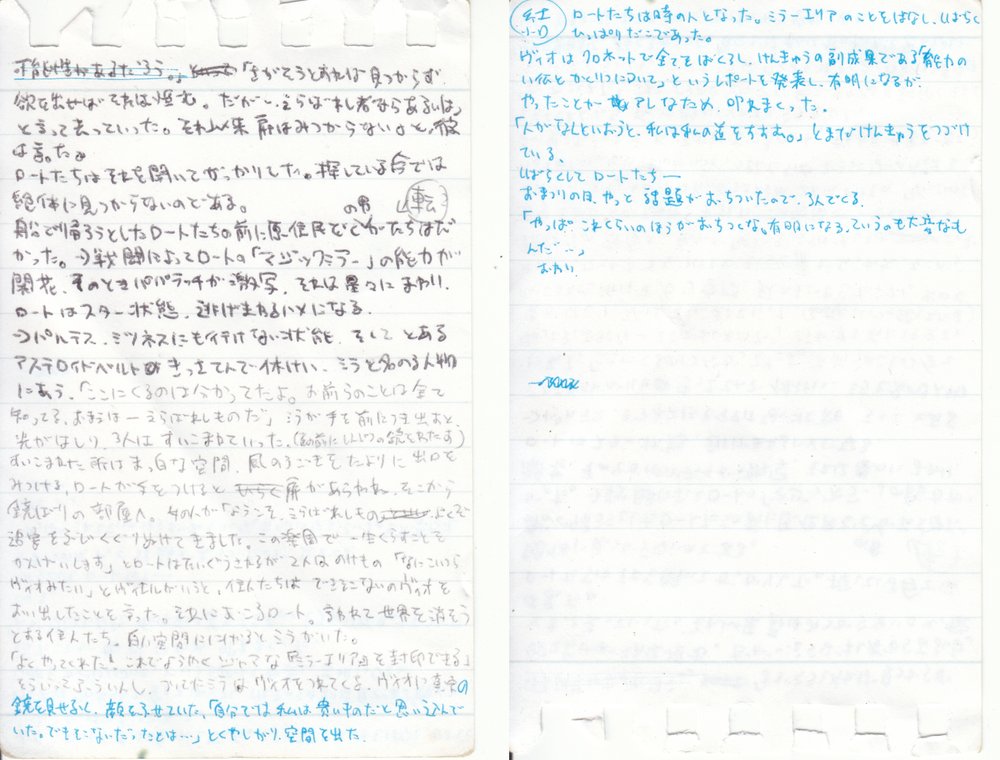 可能性があるだろう。」「さがそうとすれば見つからず
欲を出せばそれは拒む。だがー、えらばれし者ならあるいは」
と言って去っていった。それ以来 前はみつからない。と、彼
は言った。
ロートたちはそれを聞いてがっかりした。探している今では
絶体に見つからないのである。
転
船で帰ろうとしたロートたちの前に原住民
かった。→戦闘によってロートの「マジックミラー」の能力が
開花、そのときパパラッチが激写、それは星々にまわり、
ロートはスター状態、逃げまわるハメになる。
→パルテス、ミツネスにも行けない状態、そして とある
アステロイドベルト きっさてんで一休けい、ミラと名のる人物
にあう、「ここにくるのは分かってたよ。お前らのことは全て
知ってる、おまえは一えらばれしものだ」ミラが手を前につき出すと
光がはしり、3人はすいこまれていった。
すいこまれた所はまっ白な空間、風のうごきをたよりに出口を
みつける、ロートが手をつけると 扉があらわれ、そこから
鏡ばりの部屋へ。女の人が「ようこそ、えらばれしもの よくぞ
追害をうけ くぐりぬけてきました。この楽園で一生くらすことを
かんげいします」とロートはかんげいされるが2人はのけもの「なにこいら
ヴィオみたい」とヴィオルがいうと、住人たちは できそこないのヴィオを
おい出したことを言った。それにおこるロート。言われて世界を消そう
とする住人たち。白い空間ににげるとミラがいた。
「よくやってくれた！これでようやく ミラーエリアを封印できる」
そういってふういんし、 ミラはヴィオをつれてくる、ヴィオに真実の
鏡を見せると、顔をふせていた、「自分では私は賢いものだと思い込んで
いた。でもそこないだったとは…」とくやしがり、空間を出た。
結
ロートたちは時の人となった。ミラーエリアのことをはなし、しばらく
ひっぱりだこであった。
ヴィオはクロネットで全てをばくろし、けんきゅうの副成果である「能力の
い伝とかくりつについて」というレポートを発表し、有明になるが、
やったことが アレなため、叩かれまくった。
「人がなんといおうと、私は私の道をすすむ。」とまたけんきゅうをつづけ
ている、
しばらくしてロートたちー
おまつりの日、やっと 話題がおちついたので、3人でくる、
「やっぱこれくらいのほうがおちつくな。有明になる、ていうのも大変なも
んだ…」
おわり